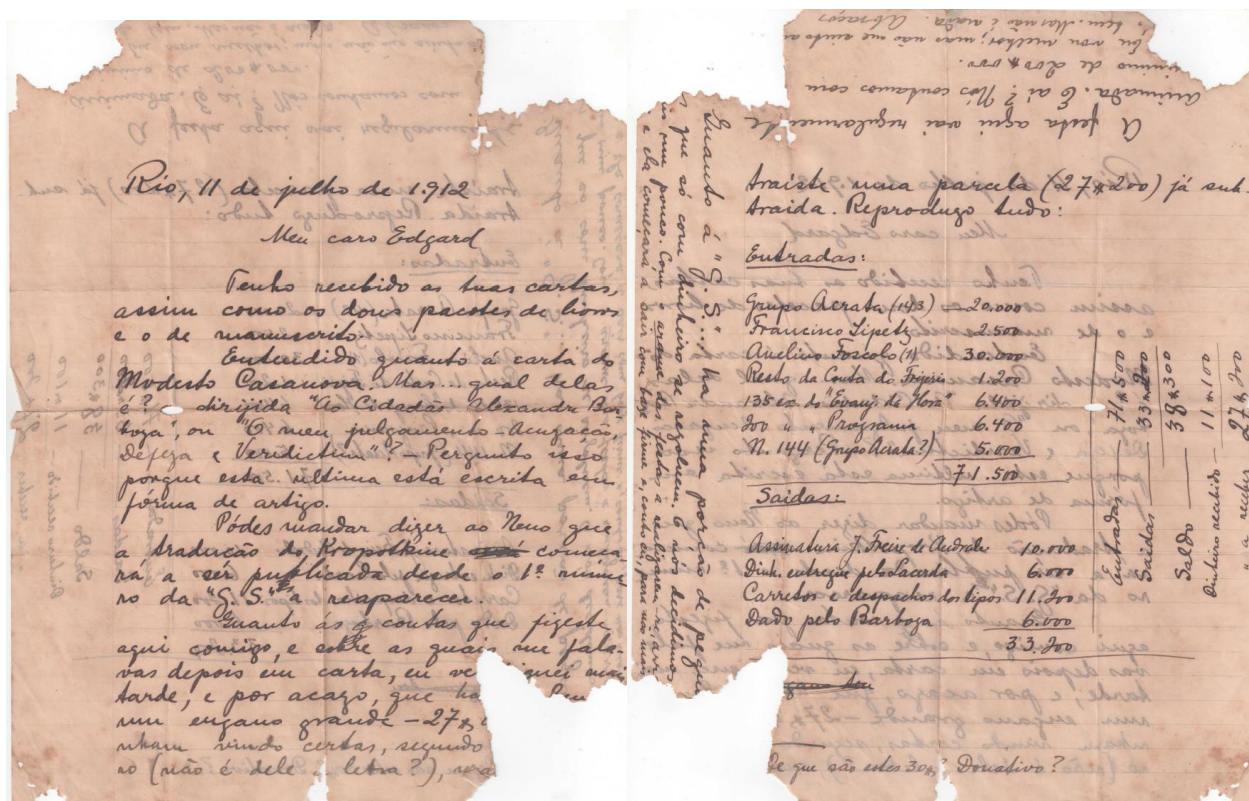 Rio, 11 de julho de 1.912
Meu caro Edgard
Tenho recebido as tuas cartas,
assim como os dous pacotes de livros
e o de manuscrito.
Entendido quanto á carta do
Modesto Casanova. Mas... qual delas
é? A dirijida "Ao Cidadão Alexandre Bar-
boza", ou "O meu julgamento - Acuzação,
Defeza e Veridictum"? - Pergunto isso
porque esta ultima está escrita em
fórma de artigo.
Pódes mandar dizer ao Neno que
a tradução do Kropotkine começa
ra a sêr publicada desde o 1º nume
ro da "G. S." a reaparecer.
Quanto as contas que fizeste
aqui comigo, e sobre as quais me fala-
vas depois em carta, eu mais
tarde, e por acazo, que
um engano grande - 27$
nham vindo certas, segundo
ro (não é dele a letra?),
A festa aqui vai regularmente
animada. E aí? Nós contamos com
minimo de 200$000.
Eu vou melhor; mas não me sinto
bem. Mas não é nada. Abraços
Quanto á "G. S."... ha uma porção de
que só com dinheiro se rezolvem. E nós decidimos
um pouco. Com o arame das festas a realizarem-se,
e ela começará a sair com baze firme e, conto eu, para nós mais
traiste uma parcela (27$200) já sub-
traida. Reproduzo tudo:
Entradas:
Grupo Acrata (143) — 20.000
Francisco Lipetz 2.500
Avelino Foscolo (1) 30.000
Resto da Conta do 1.200
135 ex. do "Evanj. da Hora" 6.400
200 " " Programa 6.400
N. 144 (Grupo Acrata?) 5.000
71.500
Saidas:
Assinatura J. Freire de Andrade 10.000
Dinh. entregue pelo Lacerda 6.000
Carretos e despachos dos tipos 11.200
Dado pelo Barboza 6.000
33.200
De que são estes 30$? Donativo?
Entradas — 71$500
Saidas — 33$200
Saldo — 38$300
Dinheiro recebido — 11$100
" a receber 27$200